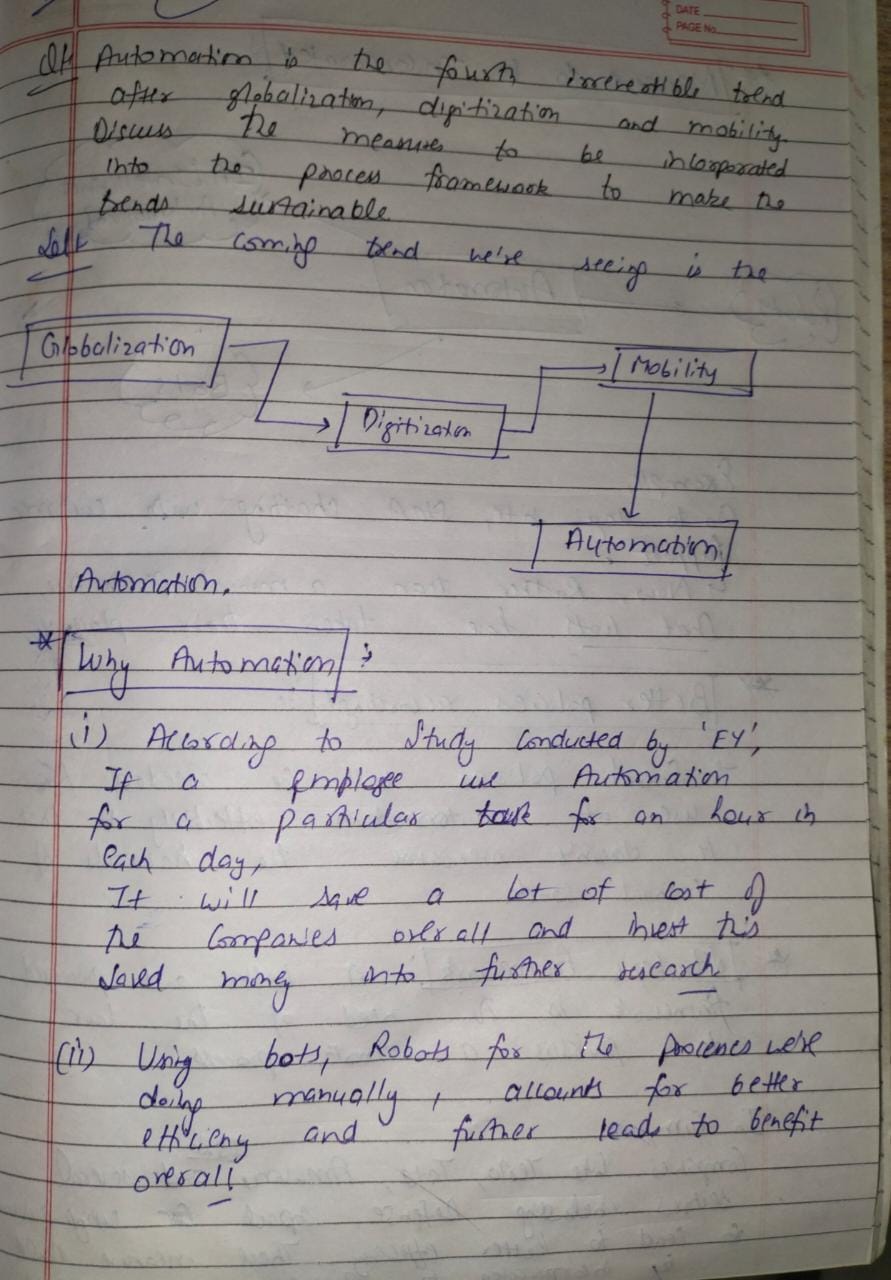 DATE
PAGE No.
Q1) Automation is the fourth irrevertible trend
after globalization, digitization and mobility.
Discuss the measures to be incorporated
into the process framework to make the
trends sustainable
Sol: The coming trend we're seeing is the
Globalization
Mobility
Digitization
Automation
Automation.
* Why Automation :
(i) According to Study conducted by 'EY',
If a Employee use Automation
for a particular task for an hour in
each day,
It will save a lot of cost of
the Companies overall and invest this
saved money into further research
(ii) Using bots, Robots for the processes we're
doing manually, accounts for better
efficieny and further leads to benefit
overall